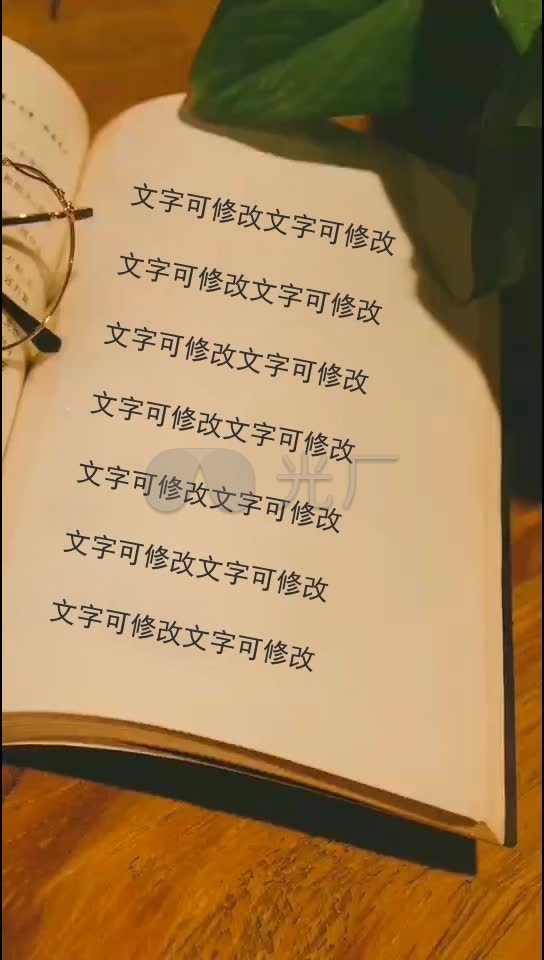 文字可修改文字可修改
文字可修改文字可修改
文字可修改文字可修改
文字可修改文字可修改
光厂
文字可修改文字可修改
文字可修改文字可修改
文字可修改文字可修改